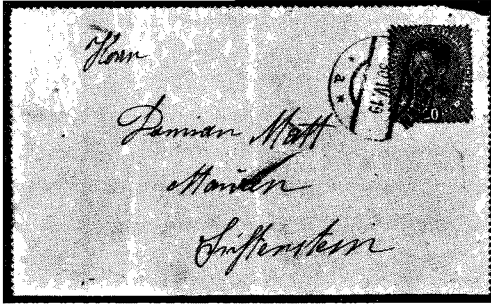 Herrn
Damian Matt
Mauren
Liechtenstein
30 IV 19
a
20